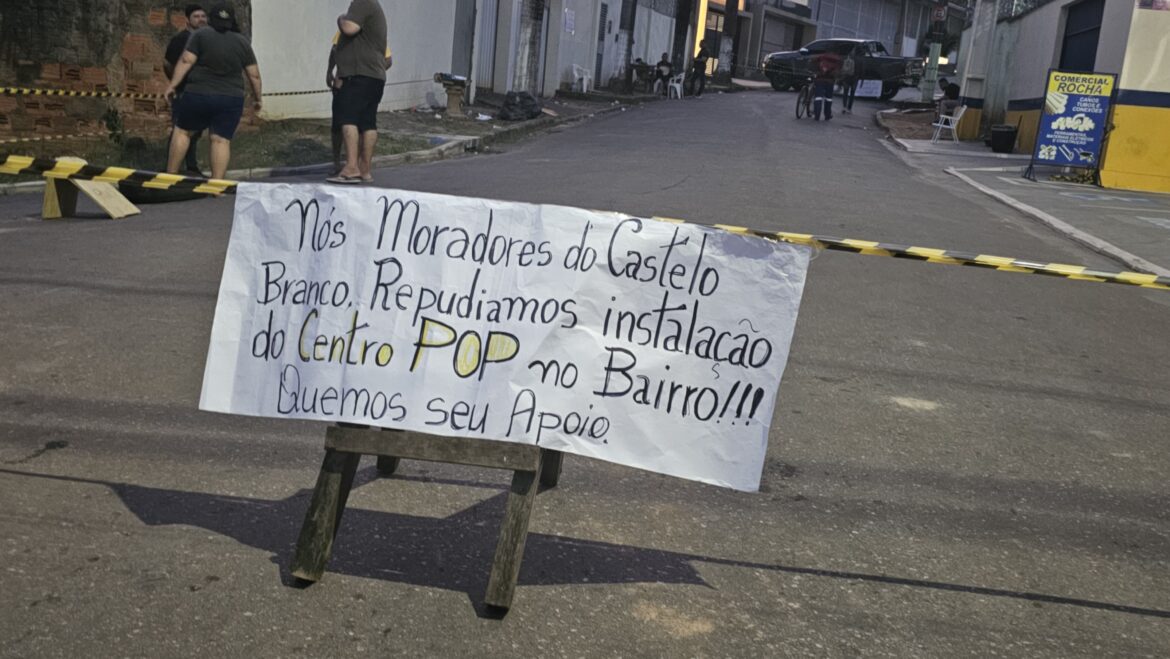 Nós Moradores do Castelo
Branco. Repudiamos instalação
do Centro POP no Bairro!!!
Quemos seu Apoio.
COMERCIAL
ROCHA
CANOS TUBOS E
CONEXÕES
FERRAMENTAS,
MATERIAIS ELÉTRICOS
E CONSTRUÇÃO